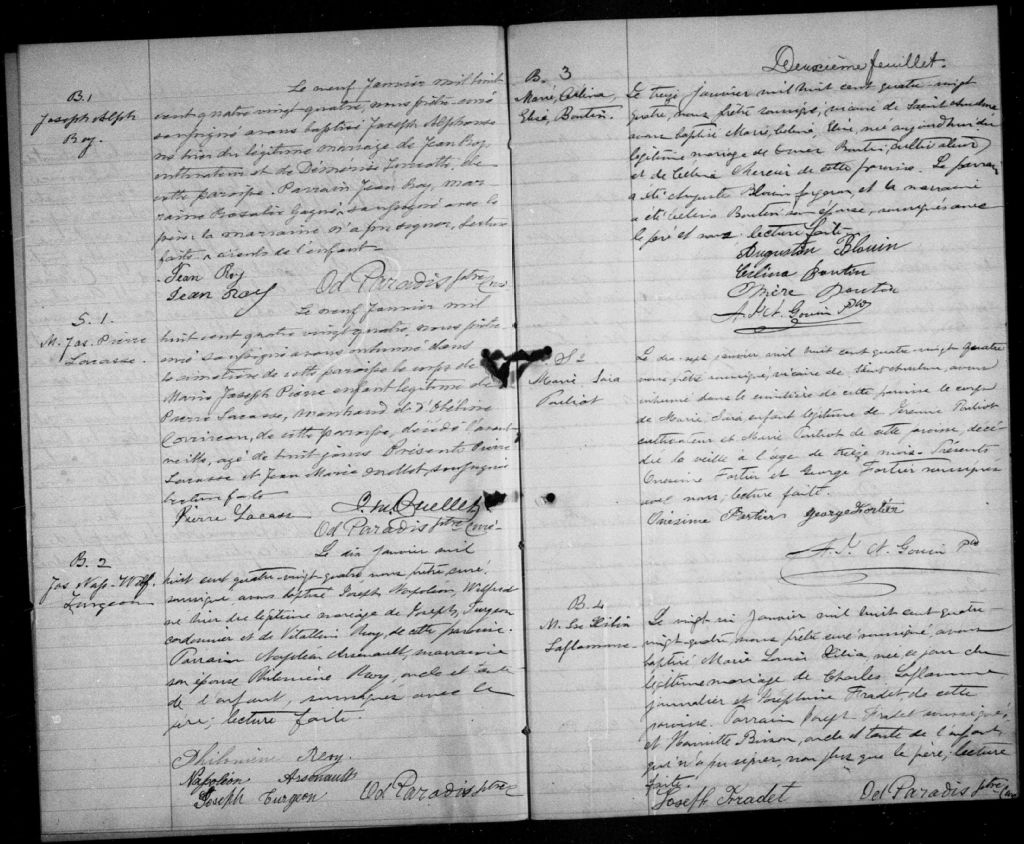 B.1
Joseph Alph
Roy.
Le neuf Janvier mil huit
cent quatre vingt quatre, nous prêtre curé
soussigné avons baptisé Joseph Alphonse
né hier du légitime mariage de Jean Roy,
cultivateur et de Démérise Turcotte de
cette paroisse. Parrain Jean Roy, mar-
raine Rosalie Gagné soussigné avec le
père, la marraine n'a pu signer, lecture
faite
Jean Roy
Jean Roy
Od Paradis ptre curé
S. 1.
M. Jos. Pierre
Lacasse.
Le neuf Janvier mil
huit cent quatre vingt quatre nous prêtre
curé soussigné avons inhumé dans
le cimetière de cette paroisse le corps de
Marie Joseph Pierre enfant légitime de
Pierre Lacasse, marchand et d'
de cette paroisse, décédé l'avant
veille, agé de huit jours Présents Pierre
Lacasse et Jean Marie soussignés
lecture faite
Pierre Lacasse
J. M. Ouellet
Od Paradis ptre curé
B. 2
Jos Nap. Wilf.
Turgeon
Le dix janvier mil
huit cent quatre-vingt-quatre nous prêtre curé
soussigné avons baptisé Joseph Napoléon, Wilfred
né hier du légitime mariage de Joseph Turgeon
cordonnier et de Vitaline Roy, de cette paroisse.
Parrain Napoléon Arsenault, marraine
son épouse Philomène Roy, oncle et tante
de l'enfant, soussignés avec le
père; lecture faite.
Philomène Roy.
Napoléon Arsenault
Joseph Turgeon
Od Paradis ptre
Deuxième feuillet.
B. 3
Marie, Célina,
Boutin.
Le treize janvier mil huit cent quatre-vingt
quatre, nous prêtre soussigné, vicaire de Saint Anselme
avons baptisé Marie, Célina, née aujourd'hui du
légitime mariage de Omer Boutin, cultivateur
et de Célina Mercier de cette paroisse. Le parrain
a été Auguste Blouin forgeron, et la marraine
a été Célina Boutin son épouse, soussignés avec
le père et nous lecture faite.
Augustin Blouin
Célina Boutin
Omère Boutin
A. N. Gouin Ptre
S 2
Marie Sara
Pouliot
Le dix-sept janvier mil huit cent quatre-vingt quatre
nous prêtre soussigné, vicaire de Saint-Anselme, avons
inhumé dans le cimetière de cette paroisse le corps
de Marie, Sara enfant légitime de Pouliot
cultivateur et Marie Pouliot de cette paroisse, décé-
dée la veille à l'age de seize mois. Présents
Onésime Fortier et George Fortier soussignés
avec nous; lecture faite.
Onésime Fortier George Fortier
A. N. Gouin Ptre
B. 4
M. Lse Exilia
Laflamme
Le vingt six Janvier mil huit cent quatre-
vingt-quatre, nous prêtre curé soussigné avons
baptisé Marie Louise Exilia, née ce jour du
légitime mariage de Charles Laflamme
journalier et Joséphine Fradet de cette
paroisse. Parrain Joseph Fradet soussigné
et Henriette Bisson, oncle et tante de l'enfant
qui n'a pu signer, non plus que le père; lecture
faite.
Joseph Fradet
Od Paradis ptre curé